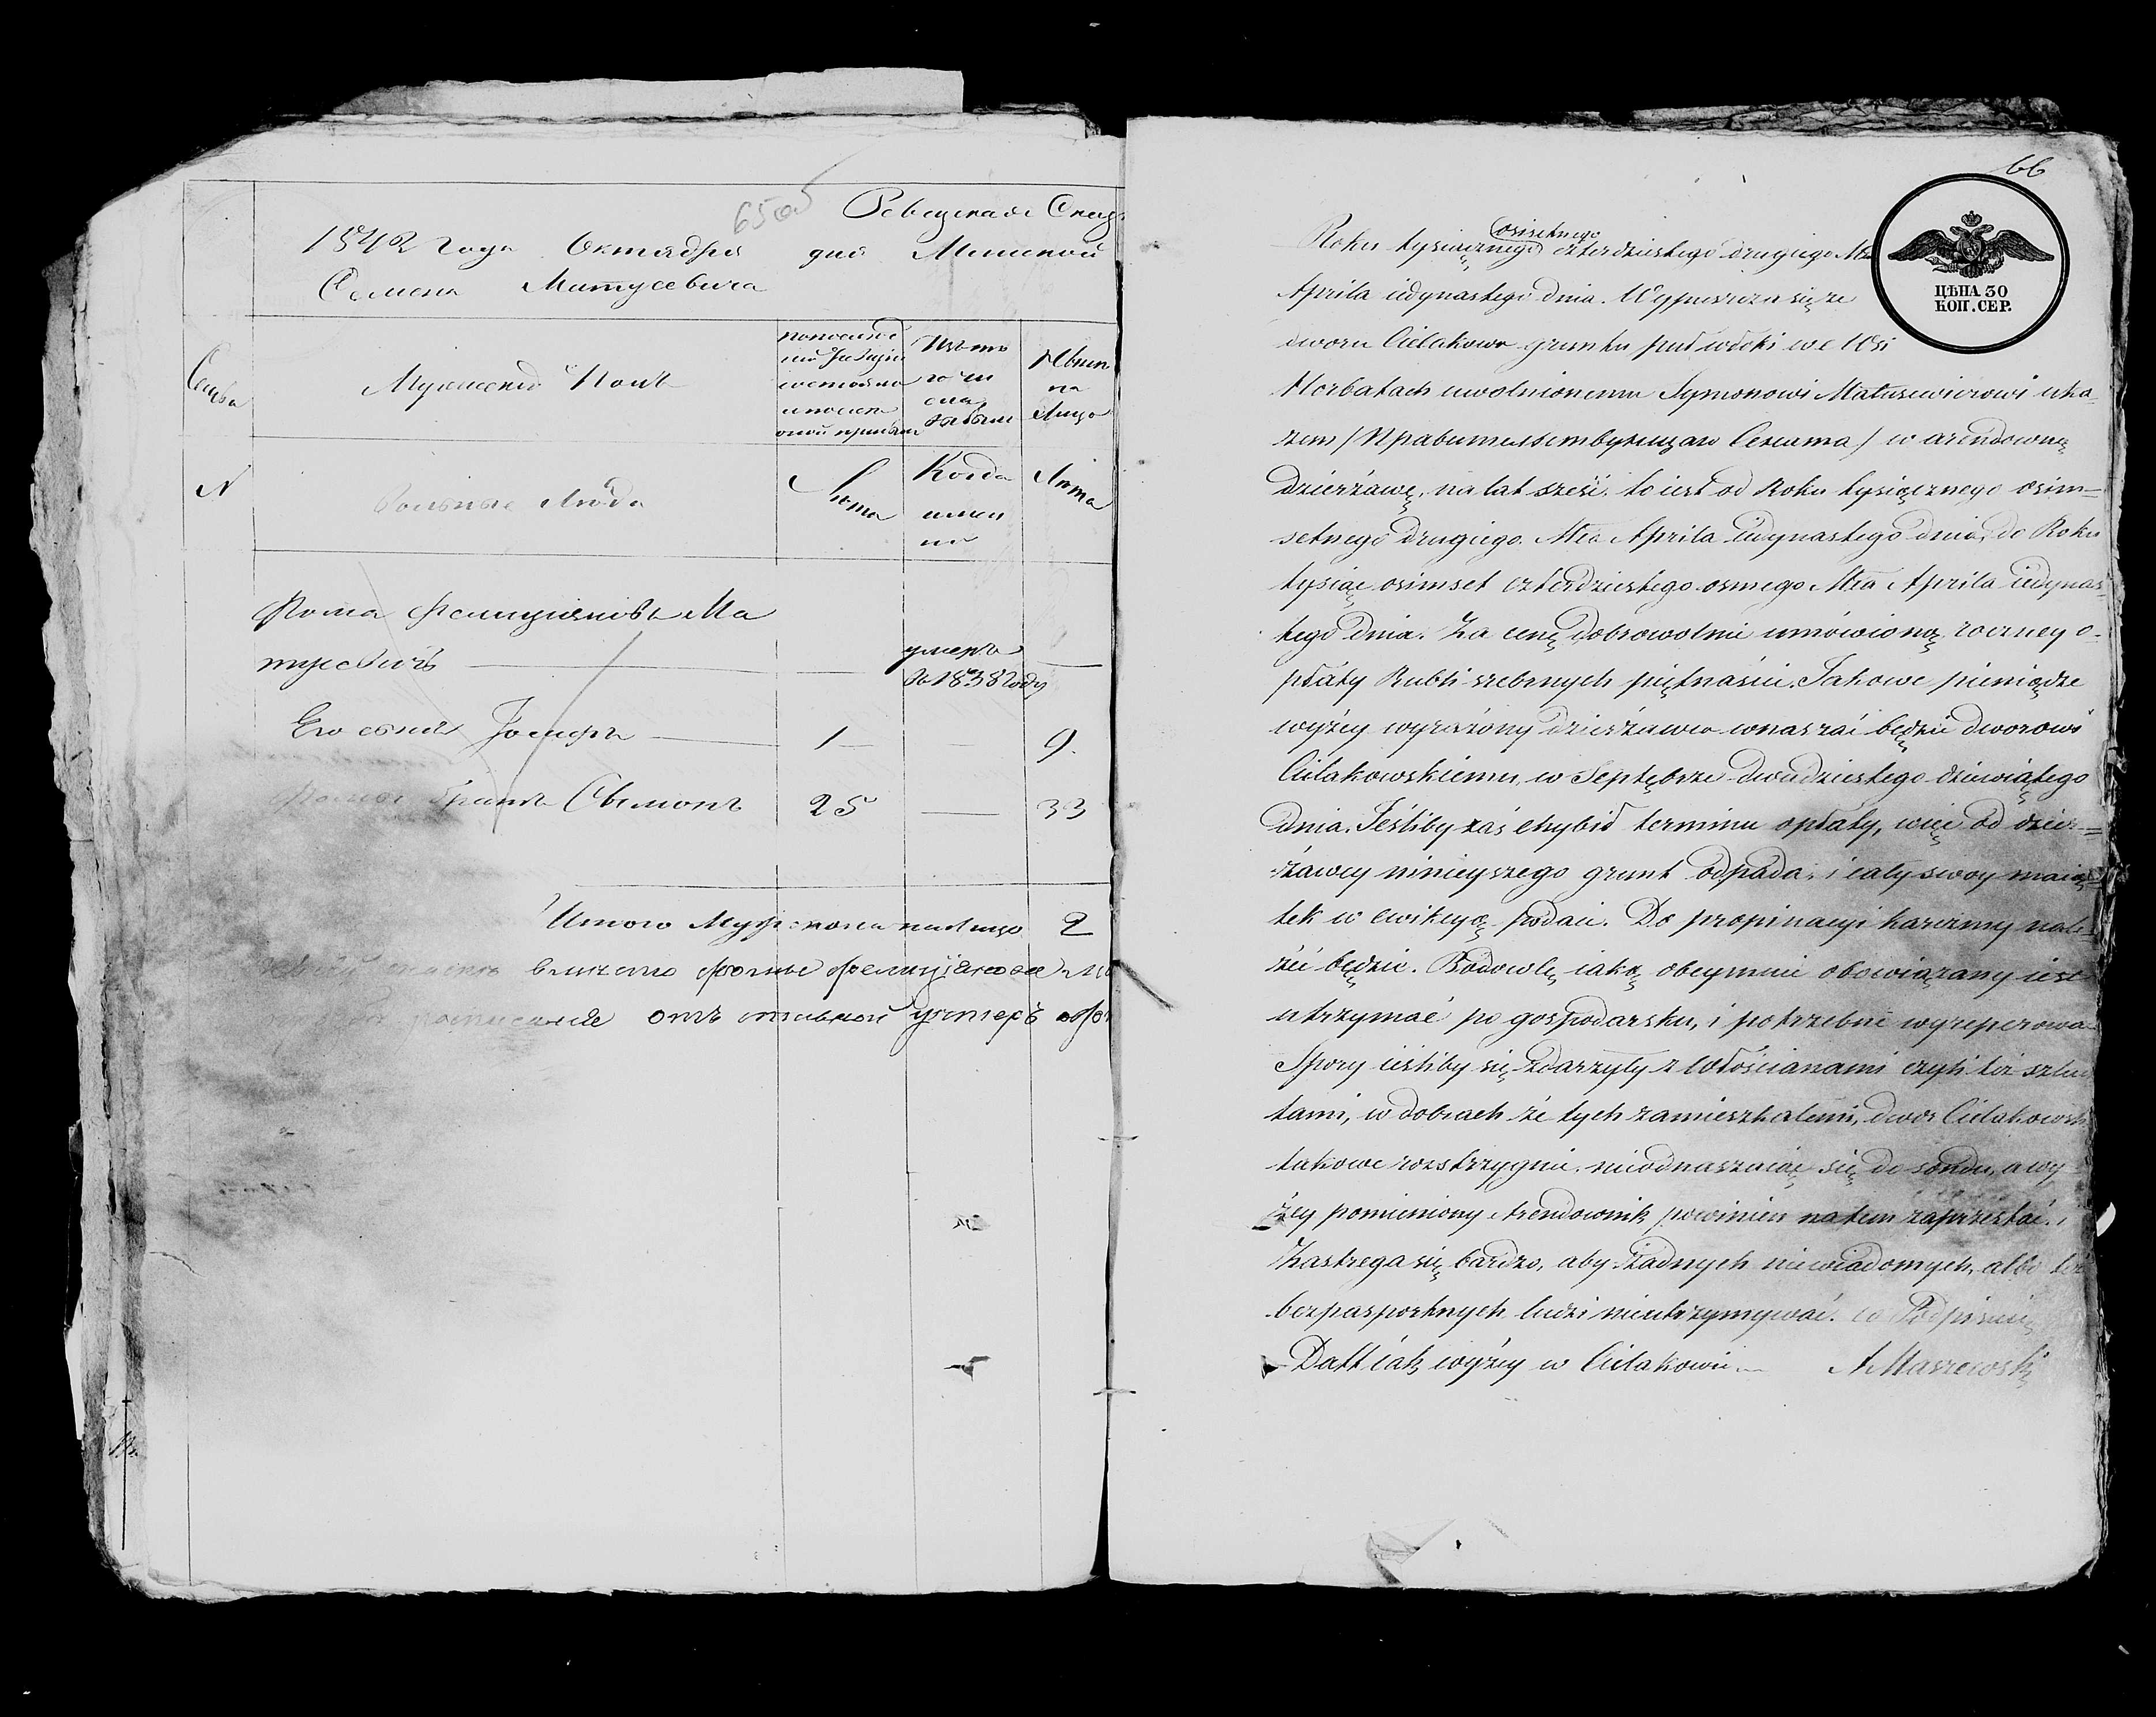 65об
Ревизская Сказ
1842 года Октября дня Минской
Семена Матусевича
Семья
Мужеский Полъ
по последней Ревизіи состояло и после оной прибыло
Изъ того числа выбыло
Ныне на Лицо
N
Вольные Люди
Лета
Когда именно
Лета
Фома Фелиціяновъ Ма
тусевичъ — — умеръ в 1838 году —
Его сынъ Іосифъ — 1 — — 9.
Фомы братъ Сымонъ 25 — 33
Итого Муж: пола на лицо 2
вышеписанные отъ
66
ЦѢНА 30
КОП. СЕР.
Roku tysiącznego osimsetnego czterdziestego drugiego Mca
Aprila iedynastego dnia. Wypuszcza się ze
dworu Cielakowa gruntu puł włoki we Wsi
Horbatach uwolnionemu Symonowi Matusewiczowi uka-
zem / Правительствующаго Сената / w arendowną
dzierżawę, na lat sześć, to iest od Roku tysiącznego osim-
setnego drugiego Mca Aprila iedynastego dnia, do Roku
tysiąc osimset czterdziestego osmego Mca Aprila iedynas-
tego dnia. Za cenę dobrowolnie umówioną roczney o-
płaty Rubli srebrnych piętnaście. Jakowe pieniądze
wyżey wyrażony dzierżawca wnaszać będzie dworowi
Cielakowskiemu, w Septębrze dwudziestego dziewiątego
dnia. Jeśliby zaś chybił terminu opłaty, więc od dzier-
żawcy ninieyszego grunt odpada, i cały swoy maią-
tek w ewikcyą podaie. Do propinacyi karczmy nale-
żeć będzie. Budowlę iaką obeymie obowiązany iest
utrzymać po gospodarsku, i potrzebnie wyreperować
Spory ieśliby się zdarzyły z Włościanami czyli też szlach
tami, w dobrach że tych zamieszkałemi, dwor Cielakowsk
takowe rozstrzygnie, nieodnaszaiąc się do sondu, a wy
żey pomieniony Arendownik powinien na tem zaprzestać.
Zastrega się bardzo, aby żadnych niewiadomych, albo też
bezpasportnych ludzi nieutrzymywać. w Podpisuię
Datt iak wyżey w Cielakowie. A Maszewski